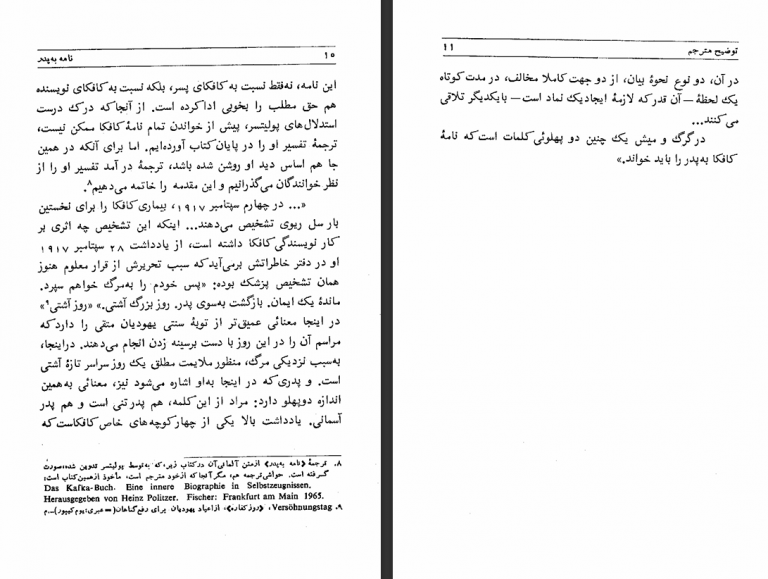 نامه به‌پدر
۱۰
این نامه، نه‌فقط نسبت به کافکای پسر، بلکه نسبت به کافکای نویسنده
هم حق مطلب را بخوبی ادا کرده است. از آنجا که درک درست
استدلال‌های پولیتسر، پیش از خواندن تمام نامهٔ کافکا ممکن نیست،
ترجمهٔ تفسیر او را در پایان کتاب آورده‌ایم. اما برای آنکه در همین
جا هم اساس دید او روشن شده باشد، ترجمهٔ در آمد تفسیر او را از
نظر خوانندگان می‌گذرانیم و این مقدمه را خاتمه می‌دهیم۸.
«... در چهارم سپتامبر ۱۹۱۷، بیماری کافکا را برای نخستین
بار سل ریوی تشخیص می‌دهند... اینکه این تشخیص چه اثری بر
کار نویسندگی کافکا داشته است، از یادداشت ۲۸ سپتامبر ۱۹۱۷
او در دفتر خاطراتش برمی‌آید که سبب تحریرش از قرار معلوم هنوز
همان تشخیص پزشک بوده: «پس خودم را به‌مرگ خواهم سپرد.
ماندهٔ یک ایمان. بازگشت به‌سوی پدر. روز بزرگ آشتی.» «روز آشتی۹»
در اینجا معنائی عمیق‌تر از توبهٔ سنتی یهودیان متقی را دارد که
مراسم آن را در این روز با دست برسینه زدن انجام می‌دهند. دراینجا،
به‌سبب نزدیکی مرگ، منظور ملایمت مطلق یک روز سراسر تازهٔ آشتی
است. و پدری که در اینجا به‌او اشاره می‌شود نیز، معنائی به‌همین
اندازه دوپهلو دارد: مراد از این کلمه، هم پدر تنی است و هم پدر
آسمانی. یادداشت بالا یکی از چهارکوچه‌های خاص کافکاست که
۸. ترجمهٔ «نامه به‌پدر» ازمتن آلمانی آن درکتاب زیر، که به‌توسط پولیتسر تدوین شده، صورت
گرفته است. حواشی ترجمه هم، مگر آنجا که ازخود مترجم است، مأخوذ ازهمین کتاب است:
Das Kafka-Buch. Eine innere Biographie in Selbstzeugnissen.
Herausgegeben von Heinz Politzer. Fischer: Frankfurt am Main 1965.
۹. Versöhnungstag، «روز کفاره»، ازاعیاد یهودیان برای رفع گناهان (= عبری: یوم کیپور)ــ.م
توضیح مترجم
۱۱
در آن، دو نوع نحوهٔ بیان، از دو جهت کاملا مخالف، در مدت کوتاه
یک لحظهٔ — آن قدر که لازمهٔ ایجاد یک نماد است — بایکدیگر تلاقی
می‌کنند...
در گرگ و میش یک چنین دو پهلوئی کلمات است که نامهٔ
کافکا به‌پدر را باید خواند.»